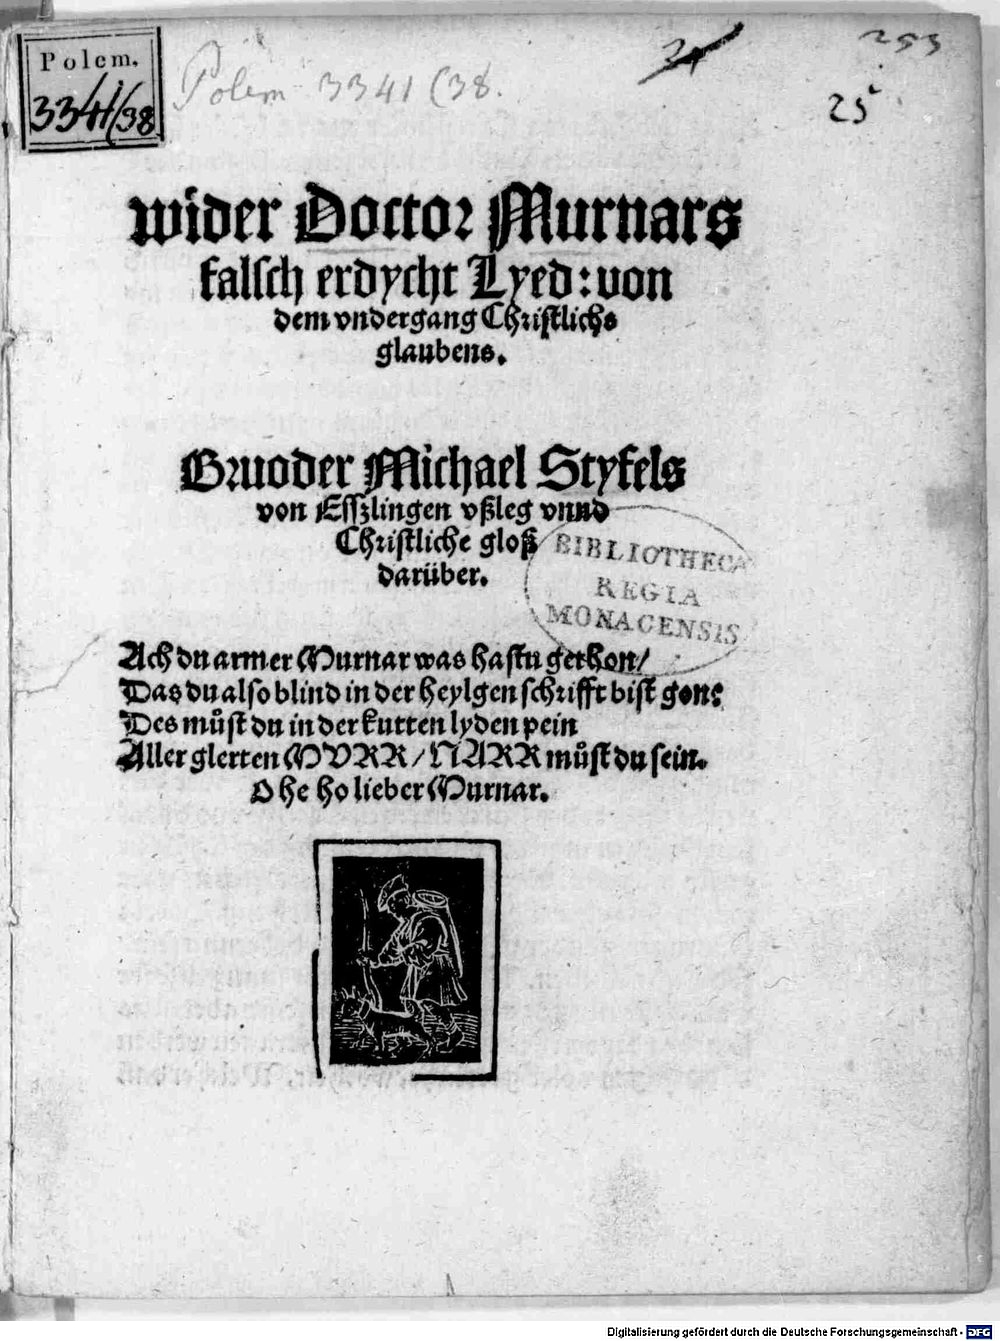 Polem.
3341/38
Polem 3341 (38.
253
25
wider Doctor Murnars
falsch erdycht Lyed: von
dem vndergang Christlichs
glaubens.
Bruoder Michael Styfels
von Esszlingen vßleg vnnd
Christliche gloß
darüber.
BIBLIOTHECA
REGIA
MONACENSIS
Ach du armer Murnar was hastu gethon/
Das du also blind in der heylgen schrifft bist gon:
Des můst du in der kutten lyden pein
Aller glerten MVRR/NARR můst du sein.
O he ho lieber Murnar.
Digitalisierung gefördert durch die Deutsche Forschungsgemeinschaft - DFG